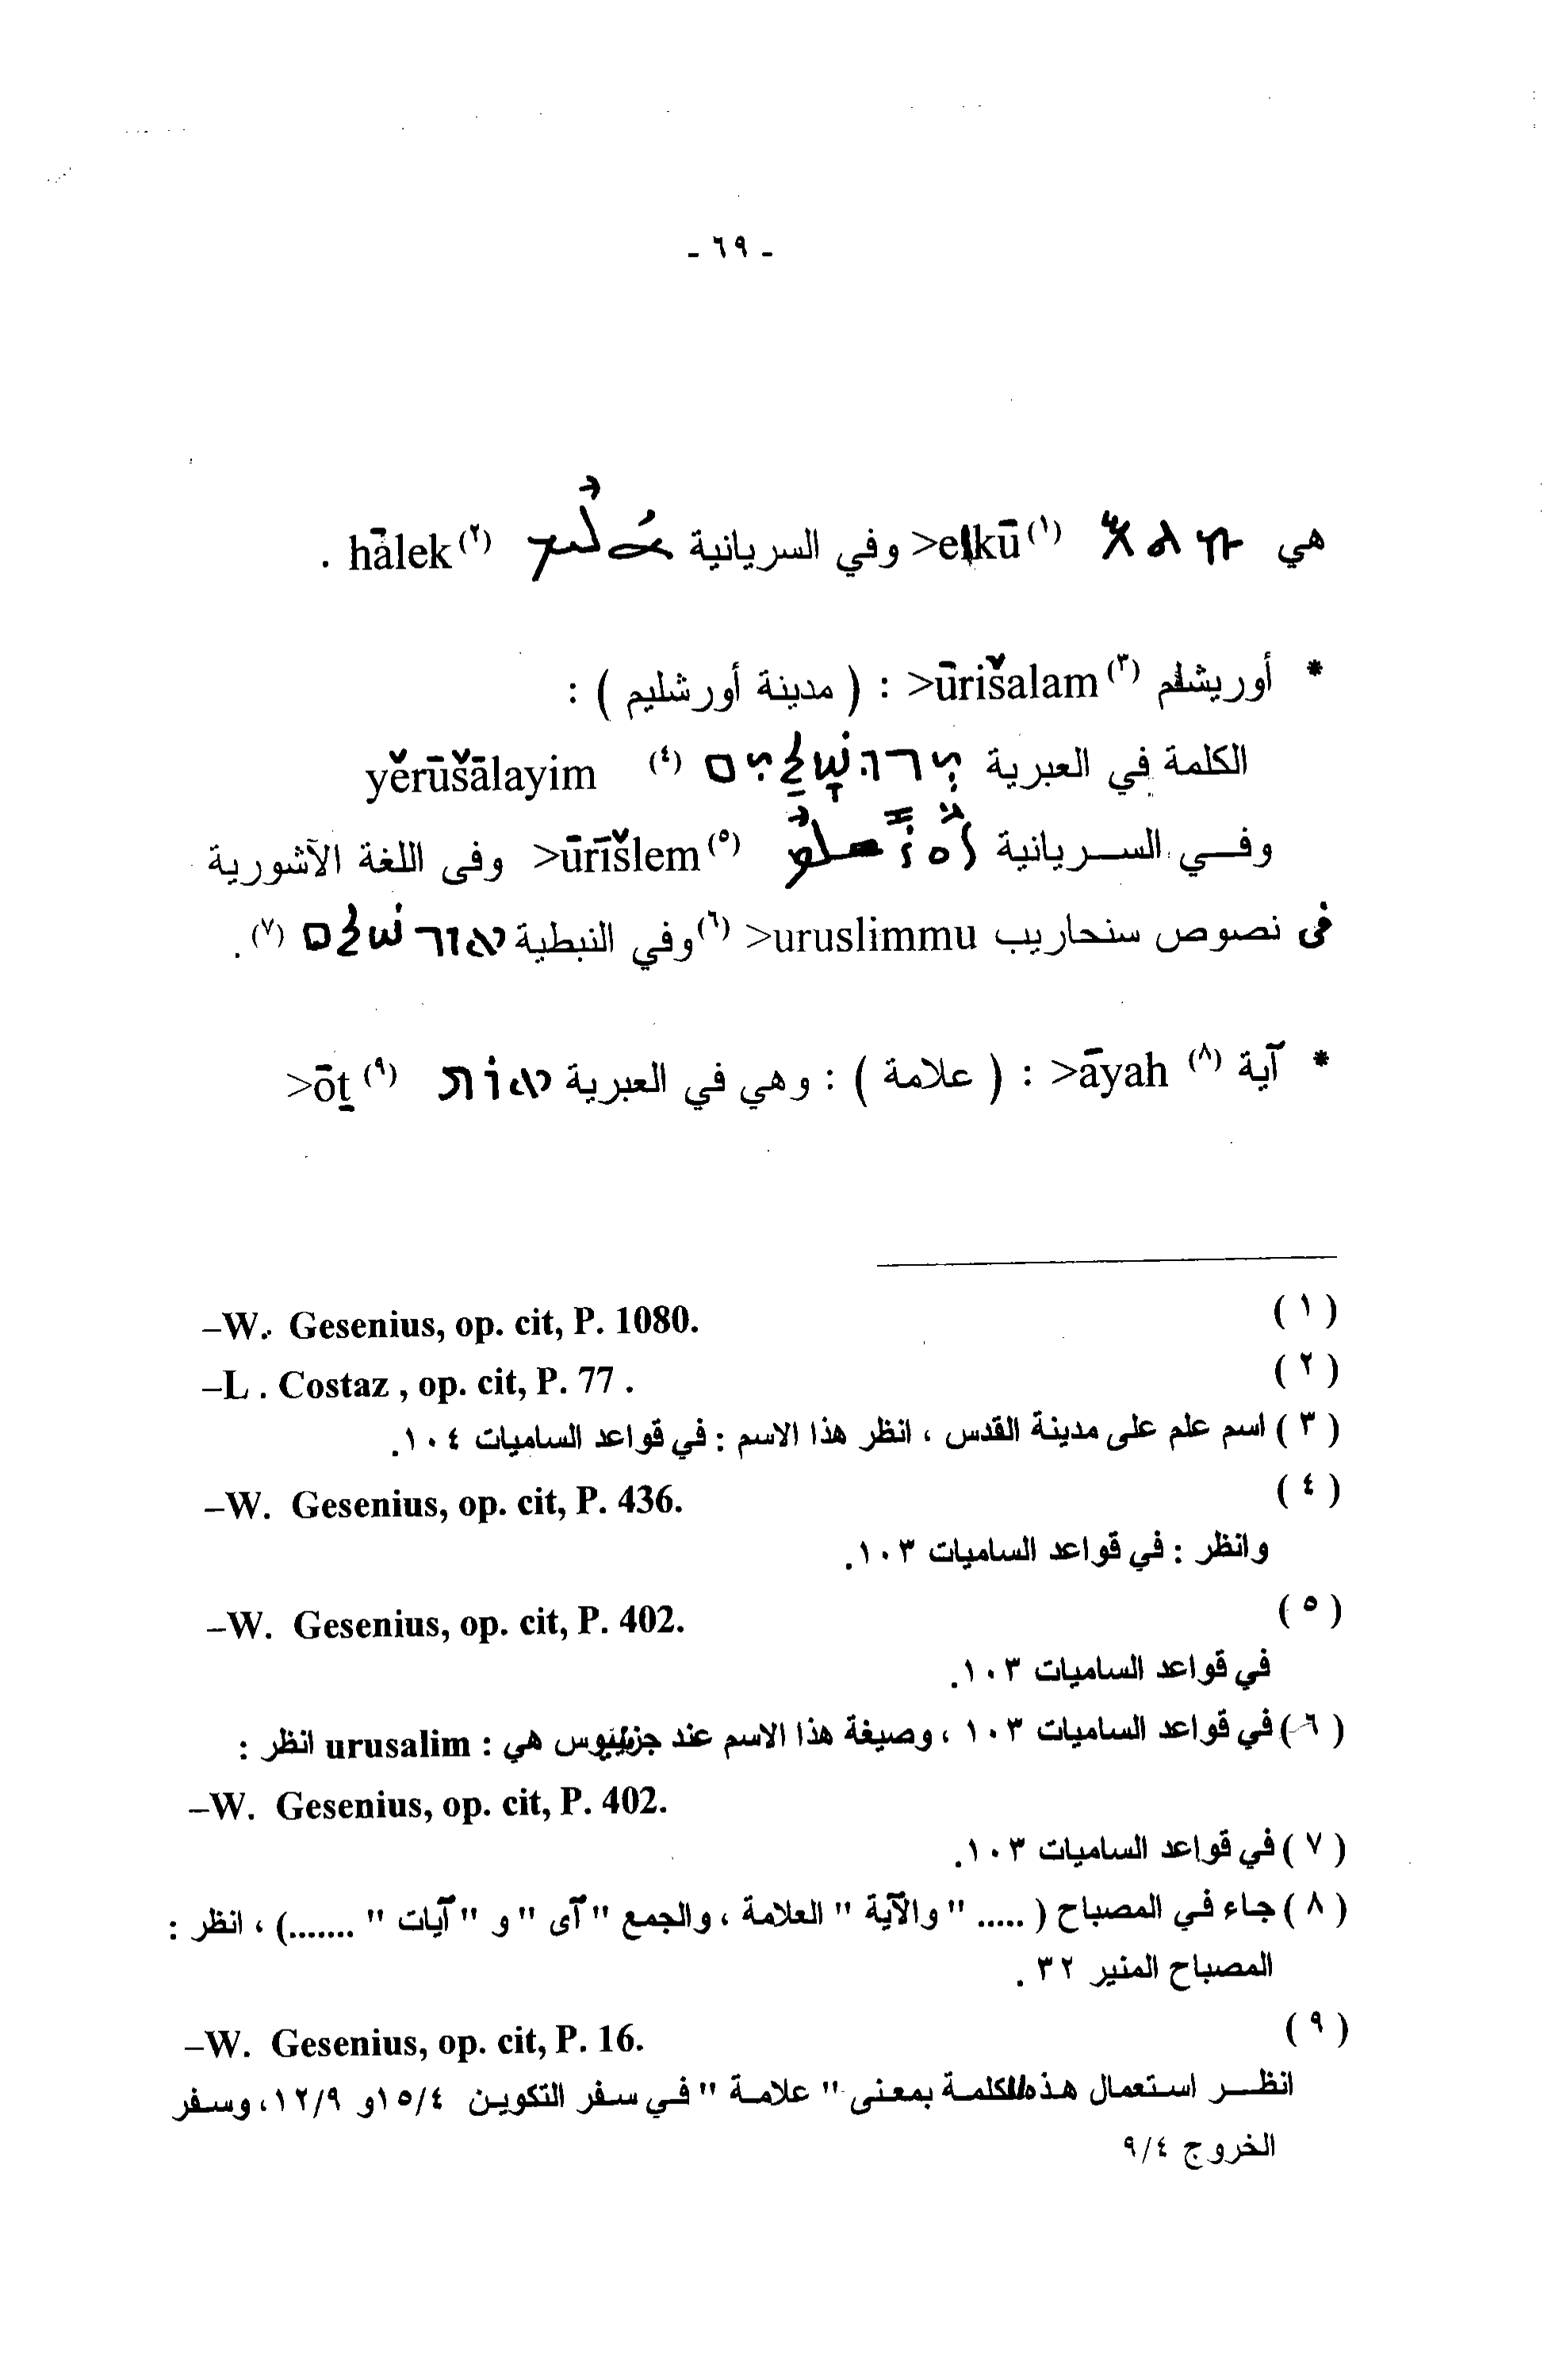 - ٦٩ -
هي አልኩ (١) >elkū وفي السريانية ܗܳܠܶܝܢ (٢) hālek .
* أوريشلم (٣) >ūrišalam : ( مدينة أورشليم ) :
الكلمة في العبرية יְרוּשָׁלַיִם (٤) yěrūšālayim
وفي السريانية (٥) >ūrīšlem وفى اللغة الآشورية
فى نصوص سنحاريب >uruslimmu (٦) وفي النبطية אורשׁלם (٧) .
* آية (٨) >āyah : ( علامة ) : وهي في العبرية אוֹת (٩) >ōṯ
(١) –W. Gesenius, op. cit, P. 1080.
(٢) –L . Costaz , op. cit, P. 77 .
(٣) اسم علم على مدينة القدس ، انظر هذا الاسم : في قواعد الساميات ١٠٤.
(٤) –W. Gesenius, op. cit, P. 436.
وانظر : في قواعد الساميات ١٠٣.
(٥) –W. Gesenius, op. cit, P. 402.
في قواعد الساميات ١٠٣.
(٦) في قواعد الساميات ١٠٣ ، وصيغة هذا الاسم عند جزنيوس هي : urusalim انظر :
–W. Gesenius, op. cit, P. 402.
(٧) في قواعد الساميات ١٠٣.
(٨) جاء في المصباح ( ..... " والآية " العلامة ، والجمع " آى " و " آيات " .......) ، انظر :
المصباح المنير ٣٢ .
(٩) –W. Gesenius, op. cit, P. 16.
انظر استعمال هذه الكلمة بمعنى " علامة " في سفر التكوين ١٥/٤ و ١٢/٩ ، وسفر
الخروج ٩/٤